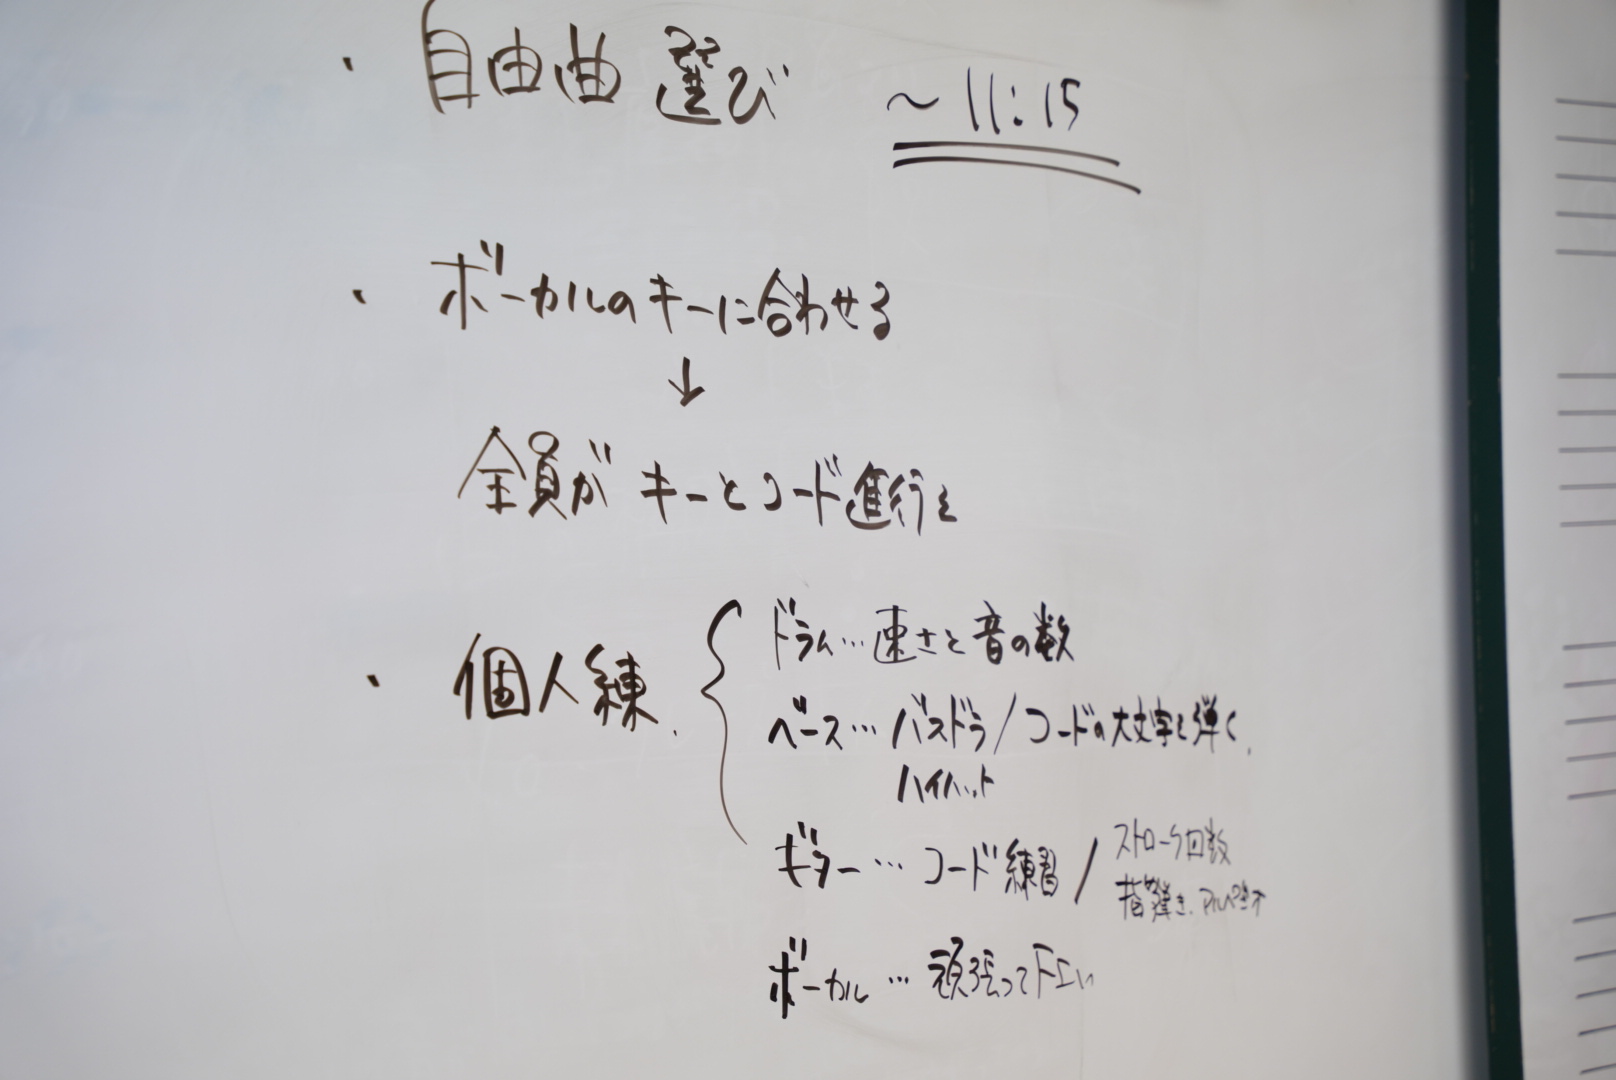 ・自由曲選び ～11:15
・ボーカルのキーに合わせる
↓
全員がキーとコード進行を
・個人練.
ドラム…速さと音の数
ベース…バスドラ/コードの大文字を弾く.
ハイハット
ギター…コード練習/ストローク回数
指弾き、アルペジオ
ボーカル…頑張って下さい